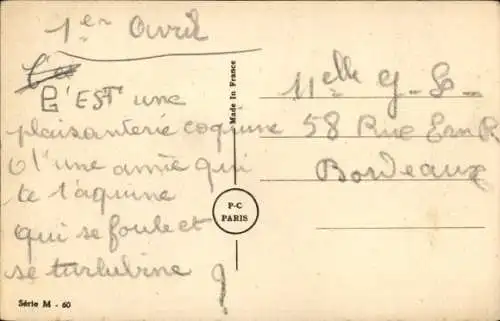 1er Avril
C'EST une
plaisanterie coquine
d'une amie qui
te taquine
qui se foule et
se turlubine
Made in France
P-C
PARIS
Melle G - L -
58 Rue Ern R
Bordeaux
Série M - 60